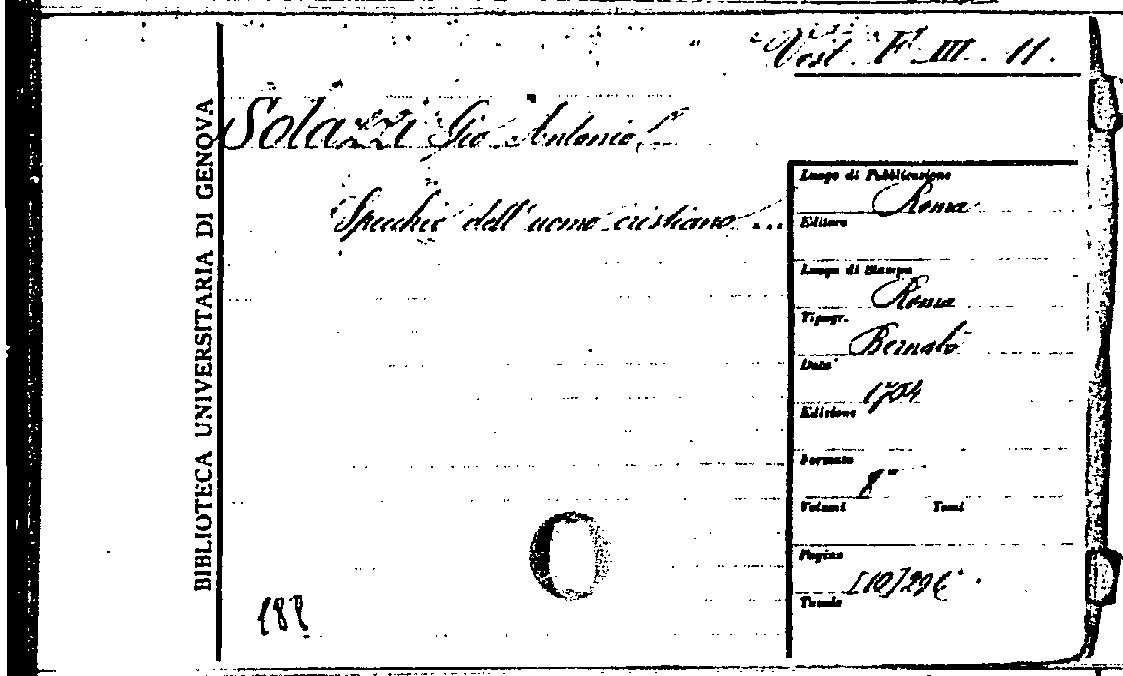 Vest. F. III. 11.
BIBLIOTECA UNIVERSITARIA DI GENOVA
Solazzi Gio Antonio
Specchio dell'uomo cristiano ...
Luogo di Pubblicazione
Roma
Editore
Luogo di Stampa
Roma
Tipogr.
Bernabò
Data
1704
Edizione
Formato
8º
Volumi Tomi
Pagine
[10] 296.
Tavole
188